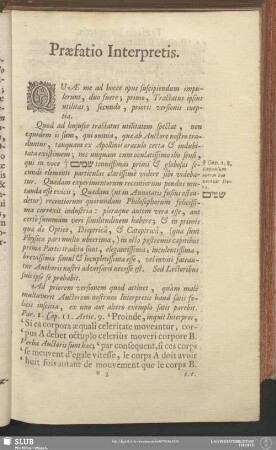 Præfatio Interpretis.
QUÆ me ad hocce opus suscipiendum impu-
lerunt, duo fuere; primo, Tractatus ipsius
utilitas; secundo, prioris versionis inep-
tia.
Quod ad hujusce tractatus utilitatem spectat, non
equidem is sum, qui omnia, quæ ab Auctore nostro tradun-
tur, tanquam ex Apollinis oraculo certa & indubi-
tata existimem;
qui in voce שמים † tenuissimas primi & globulosas
secundi elementi particulas clarissime videre sibi videba-
tur. Quædam experimentorum recentiorum pondus mu-
tanda esse evicit; Quædam
detur) recentiorum quorundam Philosophorum felicis-
sima correxit industria: pleraque autem vera esse, aut
certe summam veri similitudinem habere; & in primis
quæ de Optice, Dioptricâ, & Catoptricâ, (quæ sunt
Physicæ pars multo uberrima,) in istis postremis capitibus
primæ Partis tradita sunt, elegantissima, luculentissima,
brevissima simul & templatissima esse, velint, fatean-
tur Authoris nostri adversarii necesse est. Sed Lectoribus
suis ipse se probabit.
Ad priorem versionem quod attinet, quàm male
multaverit Auctorem nostrum Interpretis haud satis fe-
licis inscitia, ex uno aut altero exemplo satis patebit.
Par. 1. Cap. 11. Artic. 9. ‘Proinde, inquit Interpres,
‘Si ea corpora æquali celeritate moveantur, cor-
‘pus A debet octiplo celerius moveri corpore B.
Verba Auctoris sunt hæc; ‘par consequent, si ces corps
‘se meuvent d'egale vitesse, le corps A doit avoir
‘huit fois autant de mouvement que le corps B.
† Gen. 1. 8.
SLUB